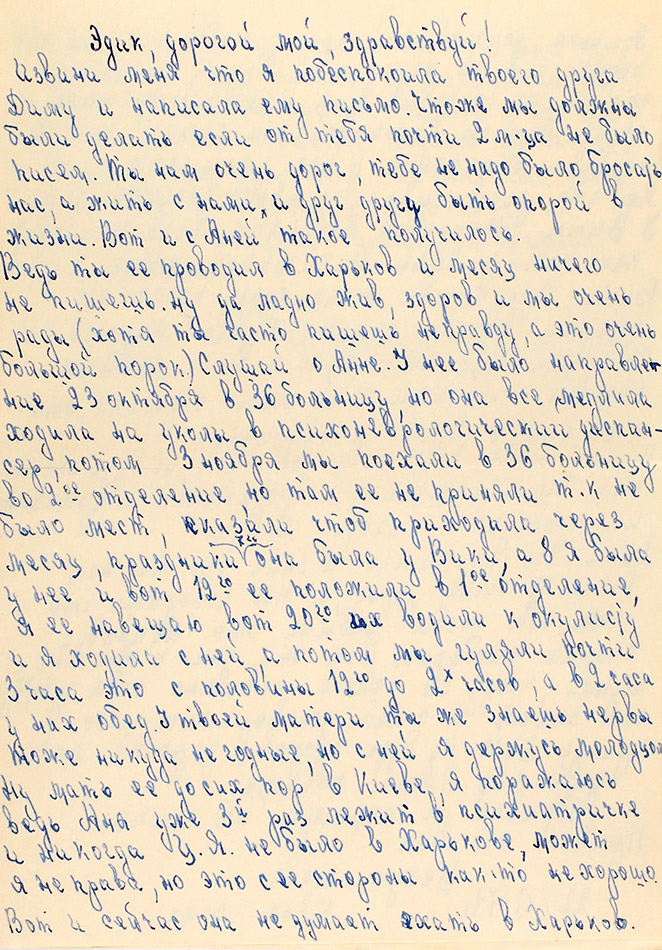 Эдик, дорогой мой, здравствуй!
Извини меня что я побеспокоила твоего друга
Диму и написала ему письмо. Чтоже мы должны
были делать если от тебя почти 2 м-ца не было
писем. Ты нам очень дорог, тебе не надо было бросать
нас, а жить с нами, и друг другу быть опорой в
жизни. Вот и с Аней такое получилось.
Ведь ты ее проводил в Харьков и месяц ничего
не пишешь. Ну да ладно жив, здоров и мы очень
рады (хотя ты часто пишешь неправду, а это очень
большой порок) Слушай о Анне. У нее было направле-
ние 23 октября в 36 больницу, но она все медлила
ходила на уколы в психоневрологический диспан-
сер, потом 3 ноября мы поехали в 36 больницу
во 2ое отделение но там ее не приняли т.к не
было мест, сказали чтоб приходила через
месяц, праздники 7го она была у Вики, а 8 я была
у нее и вот 12го ее положили в 1ое отделение,
я ее навещаю, вот 20го их водили к окулисту
и я ходила с ней, а потом мы гуляли почти
3 часа это с половины 12го до 2х часов, а в 2 часа
у них обед. У твоей матери ты же знаешь нервы
тоже никуда негодные, но с ней я держусь молодцом
Ну мать ее до сих пор в Киеве, я поражаюсь
ведь Аня уже 3й раз лежит в психиатричке
и никогда Ц.Я. не было в Харькове, может
я неправа, но это с ее стороны как-то не хорошо.
Вот и сейчас она не думает ехать в Харьков.